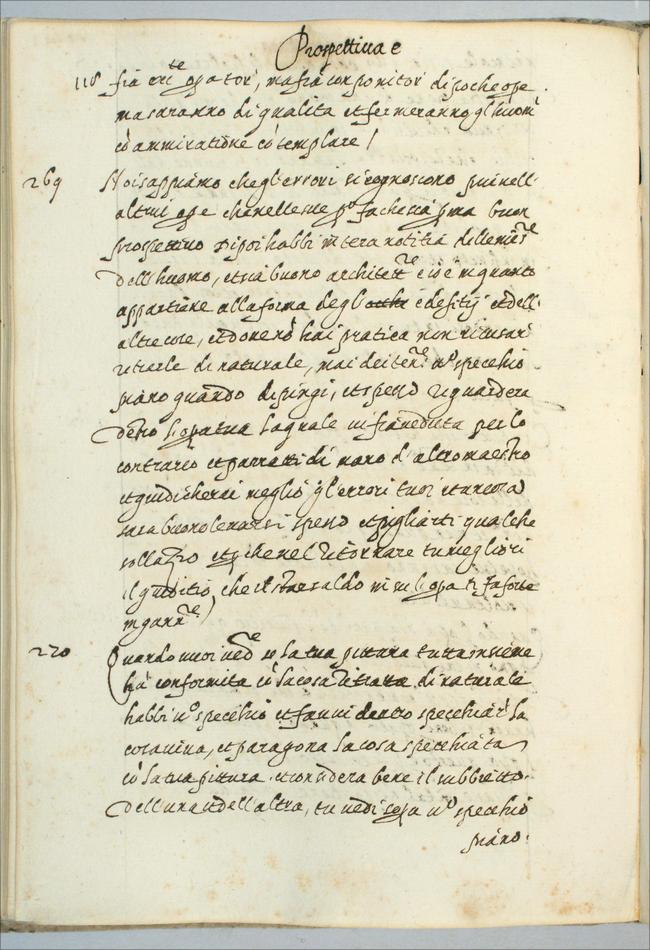 Prospettiua e
118 sia
ma saranno di qualità et fermeranno gl'huom̄
cō ammiratione cō templare /
269 Noi sappiamo che gl'errori si cognoscono piu nell'
altrui op̄e che nelle sue fa che sia p̄ma buon
prospettiuo di poi habbi intera notitia delle
dell'huomo, et sia buono architett.re cioè in quanto
appartiene alla forma degl' edefitij et dell'
altre cose, et doue nō hai pratica non ricusar'
ritrarle di naturale, mai dei tener' uº specchio
piano quando dipingi, et spesso riguardera
detro l'opa tua la quale ui fia ueduta per lo
contrario et parratti di mano d'altro maestro
et giudicherai meglio gl'errori tuoi et ancora
sara buono leuarsi spesso et pigliarsi qualche
sollazzo che nel ritornare tu megliori
il giuditio, che il star saldo in su l'opa ti fa forte
ingann.re /
270 Quando uuoi ued.re se la tua pittura tutta insieme
ha conformita cō la cosa ritratta di naturale
habbi uº specchio et fa ui dentro specchiar' la
cosa uiua, et paragona la cosa specchiata
cō la tua pittura et considera bene il subbietto
dell'una et dell'altra, tu uedi uº specchio
piano.